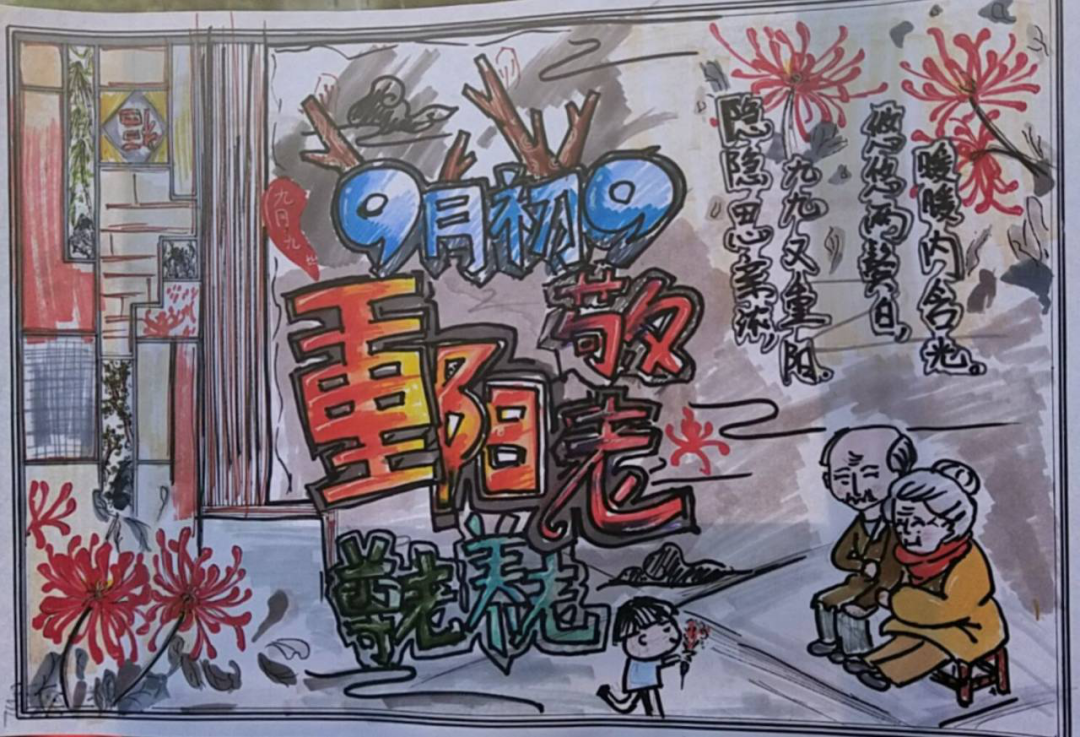 9月初9
九月九
重阳
敬老
尊老养老
隐隐思亲浓,
九九又重阳。
悠悠两鬓白,
暖暖内含光。